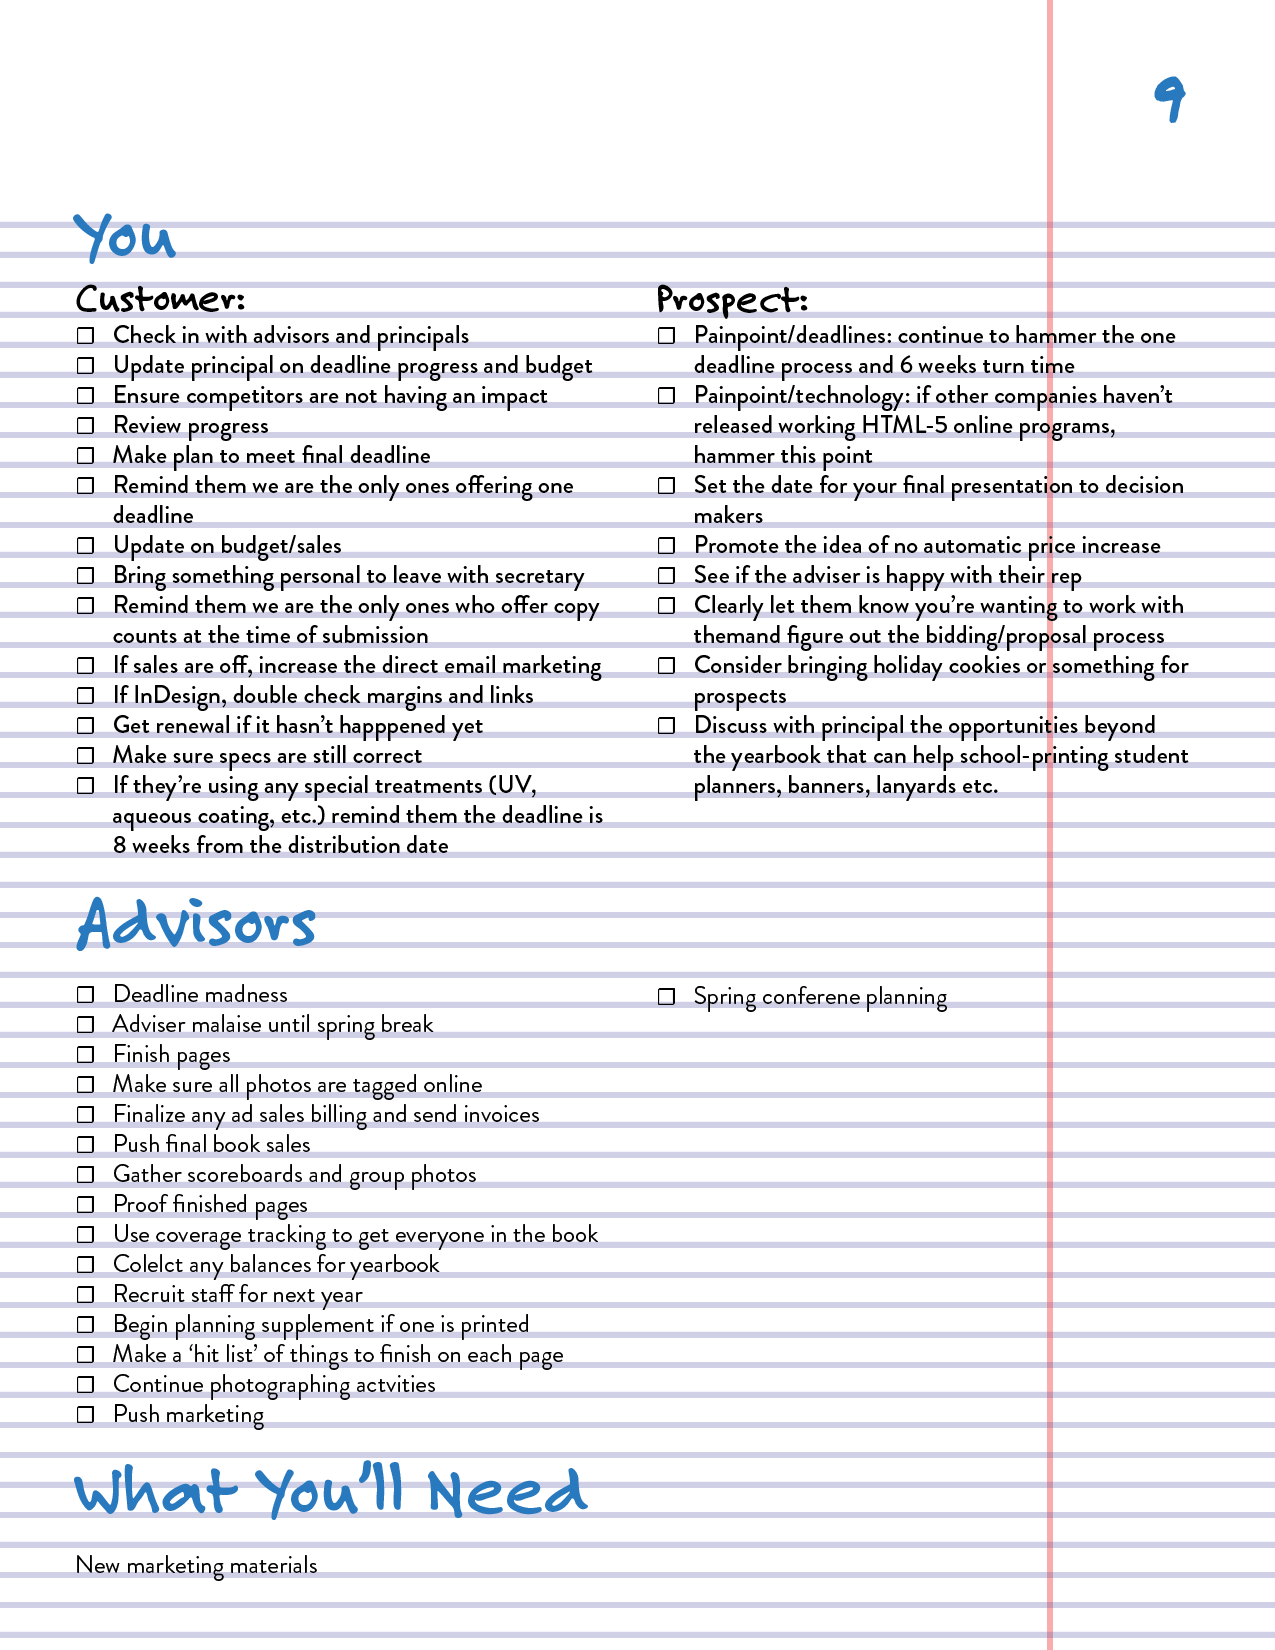 9
You
Customer:
❒ Check in with advisors and principals
❒ Update principal on deadline progress and budget
❒ Ensure competitors are not having an impact
❒ Review progress
❒ Make plan to meet final deadline
❒ Remind them we are the only ones offering one
deadline
❒ Update on budget/sales
❒ Bring something personal to leave with secretary
❒ Remind them we are the only ones who offer copy
counts at the time of submission
❒ If sales are off, increase the direct email marketing
❒ If InDesign, double check margins and links
❒ Get renewal if it hasn't happpened yet
❒ Make sure specs are still correct
❒ If they're using any special treatments (UV,
aqueous coating, etc.) remind them the deadline is
8 weeks from the distribution date
Prospect:
❒ Painpoint/deadlines: continue to hammer the one
deadline process and 6 weeks turn time
❒ Painpoint/technology: if other companies haven't
released working HTML-5 online programs,
hammer this point
❒ Set the date for your final presentation to decision
makers
❒ Promote the idea of no automatic price increase
❒ See if the adviser is happy with their rep
❒ Clearly let them know you're wanting to work with
themand figure out the bidding/proposal process
❒ Consider bringing holiday cookies or something for
prospects
❒ Discuss with principal the opportunities beyond
the yearbook that can help school-printing student
planners, banners, lanyards etc.
Advisors
❒ Deadline madness
❒ Adviser malaise until spring break
❒ Finish pages
❒ Make sure all photos are tagged online
❒ Finalize any ad sales billing and send invoices
❒ Push final book sales
❒ Gather scoreboards and group photos
❒ Proof finished pages
❒ Use coverage tracking to get everyone in the book
❒ Colelct any balances for yearbook
❒ Recruit staff for next year
❒ Begin planning supplement if one is printed
❒ Make a 'hit list' of things to finish on each page
❒ Continue photographing actvities
❒ Push marketing
❒ Spring conferene planning
What You'll Need
New marketing materials